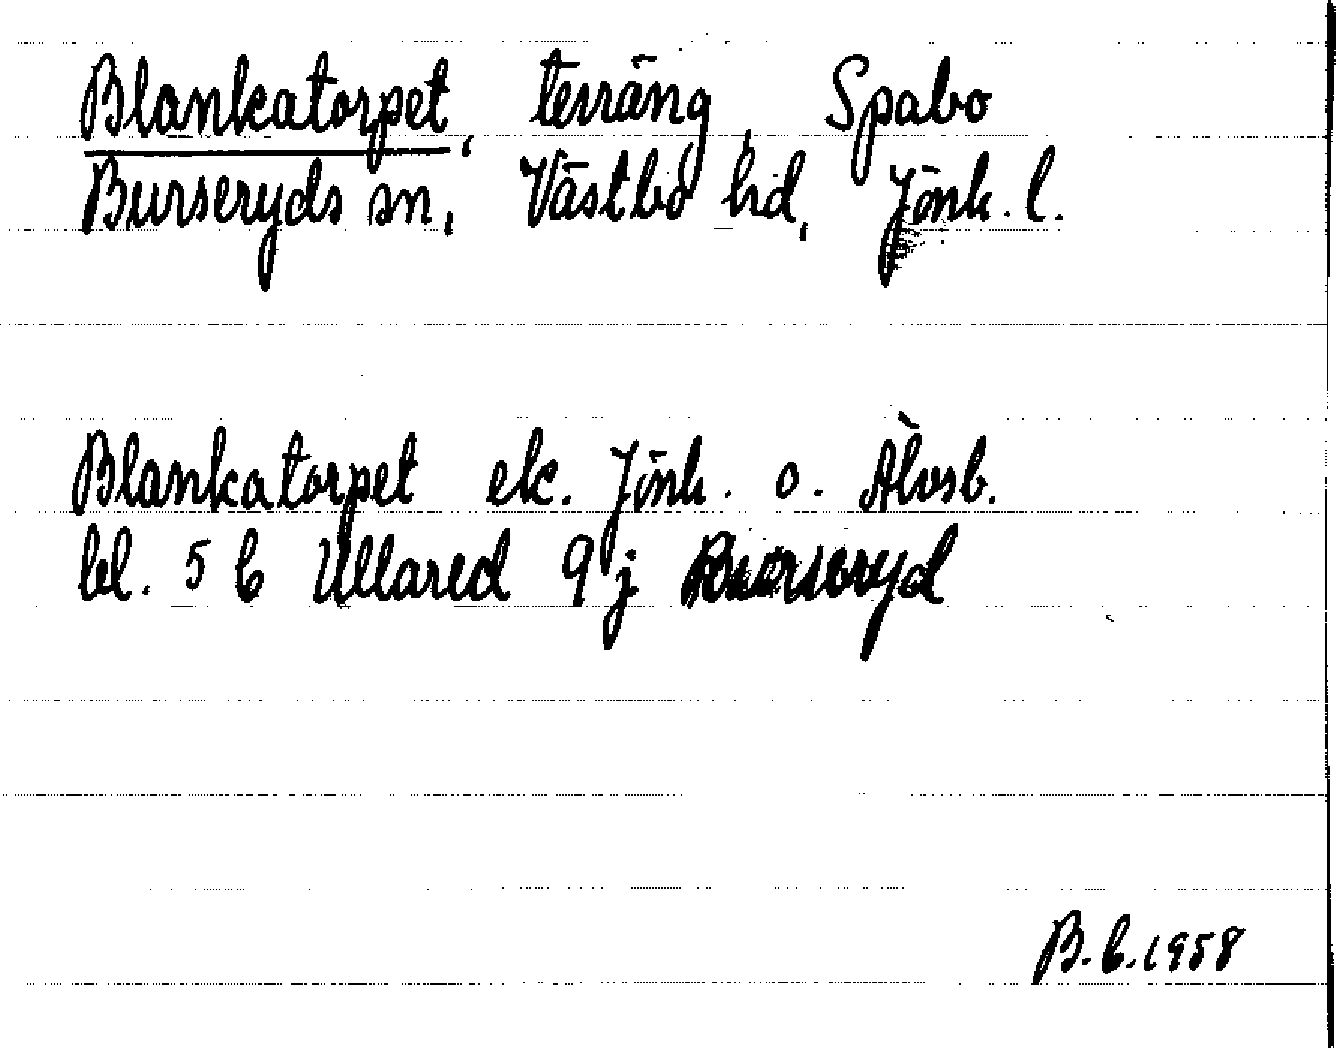 Blankatorpet, terräng, Spabo
Burseryds sn, Västbo hd, Jönk. l.
Blankatorpet ek. Jönk. o. Älvsb.
bl. 5 C Ullared 9 j Burseryd
B.L.1958